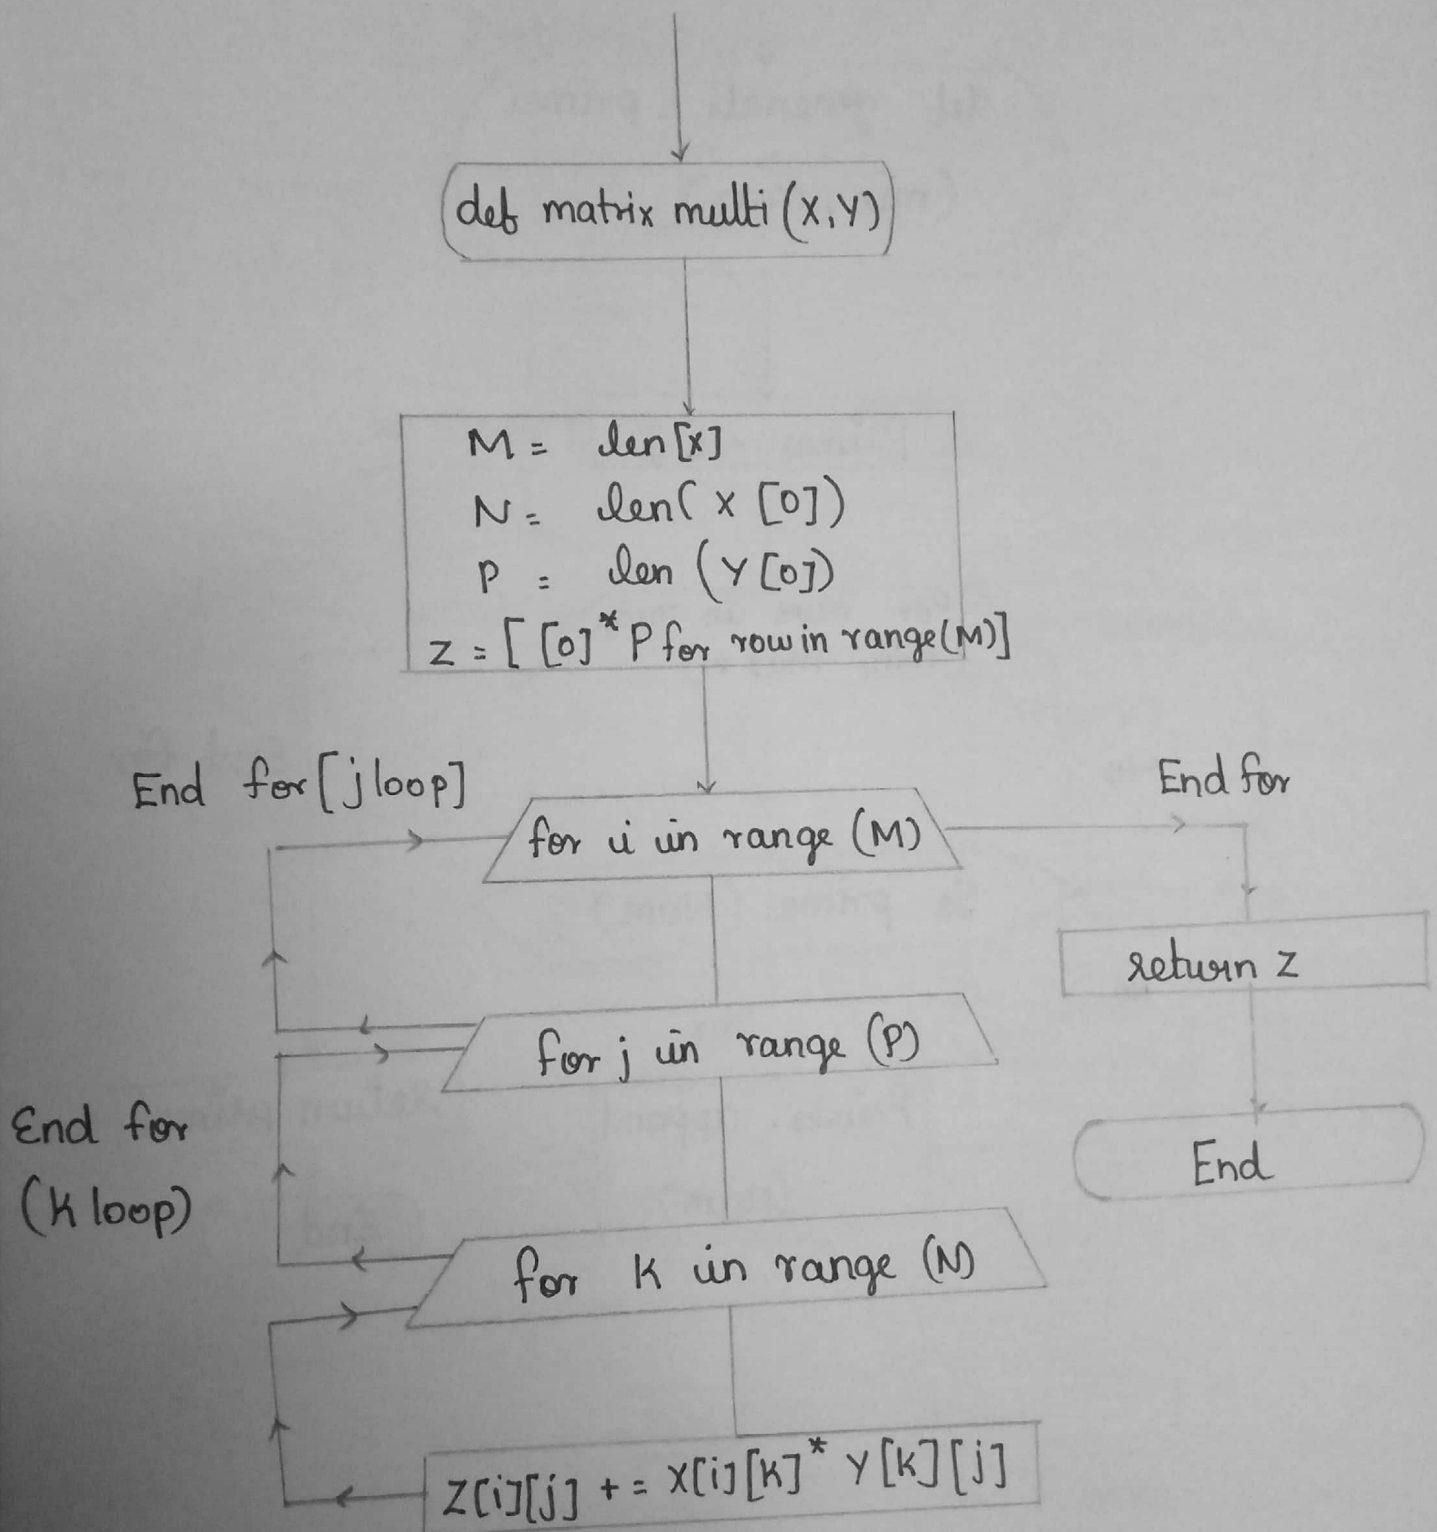 def matrix multi (X, Y)
M = len [x]
N = len( x [0])
P = len (Y [0])
Z = [ [0] * P for row in range (M)]
End for [j loop]
End for
for i in range (M)
return Z
for j in range (P)
End for
(K loop)
End
for K in range (N)
Z[i][j] + = X[i][K] * Y[K][j]